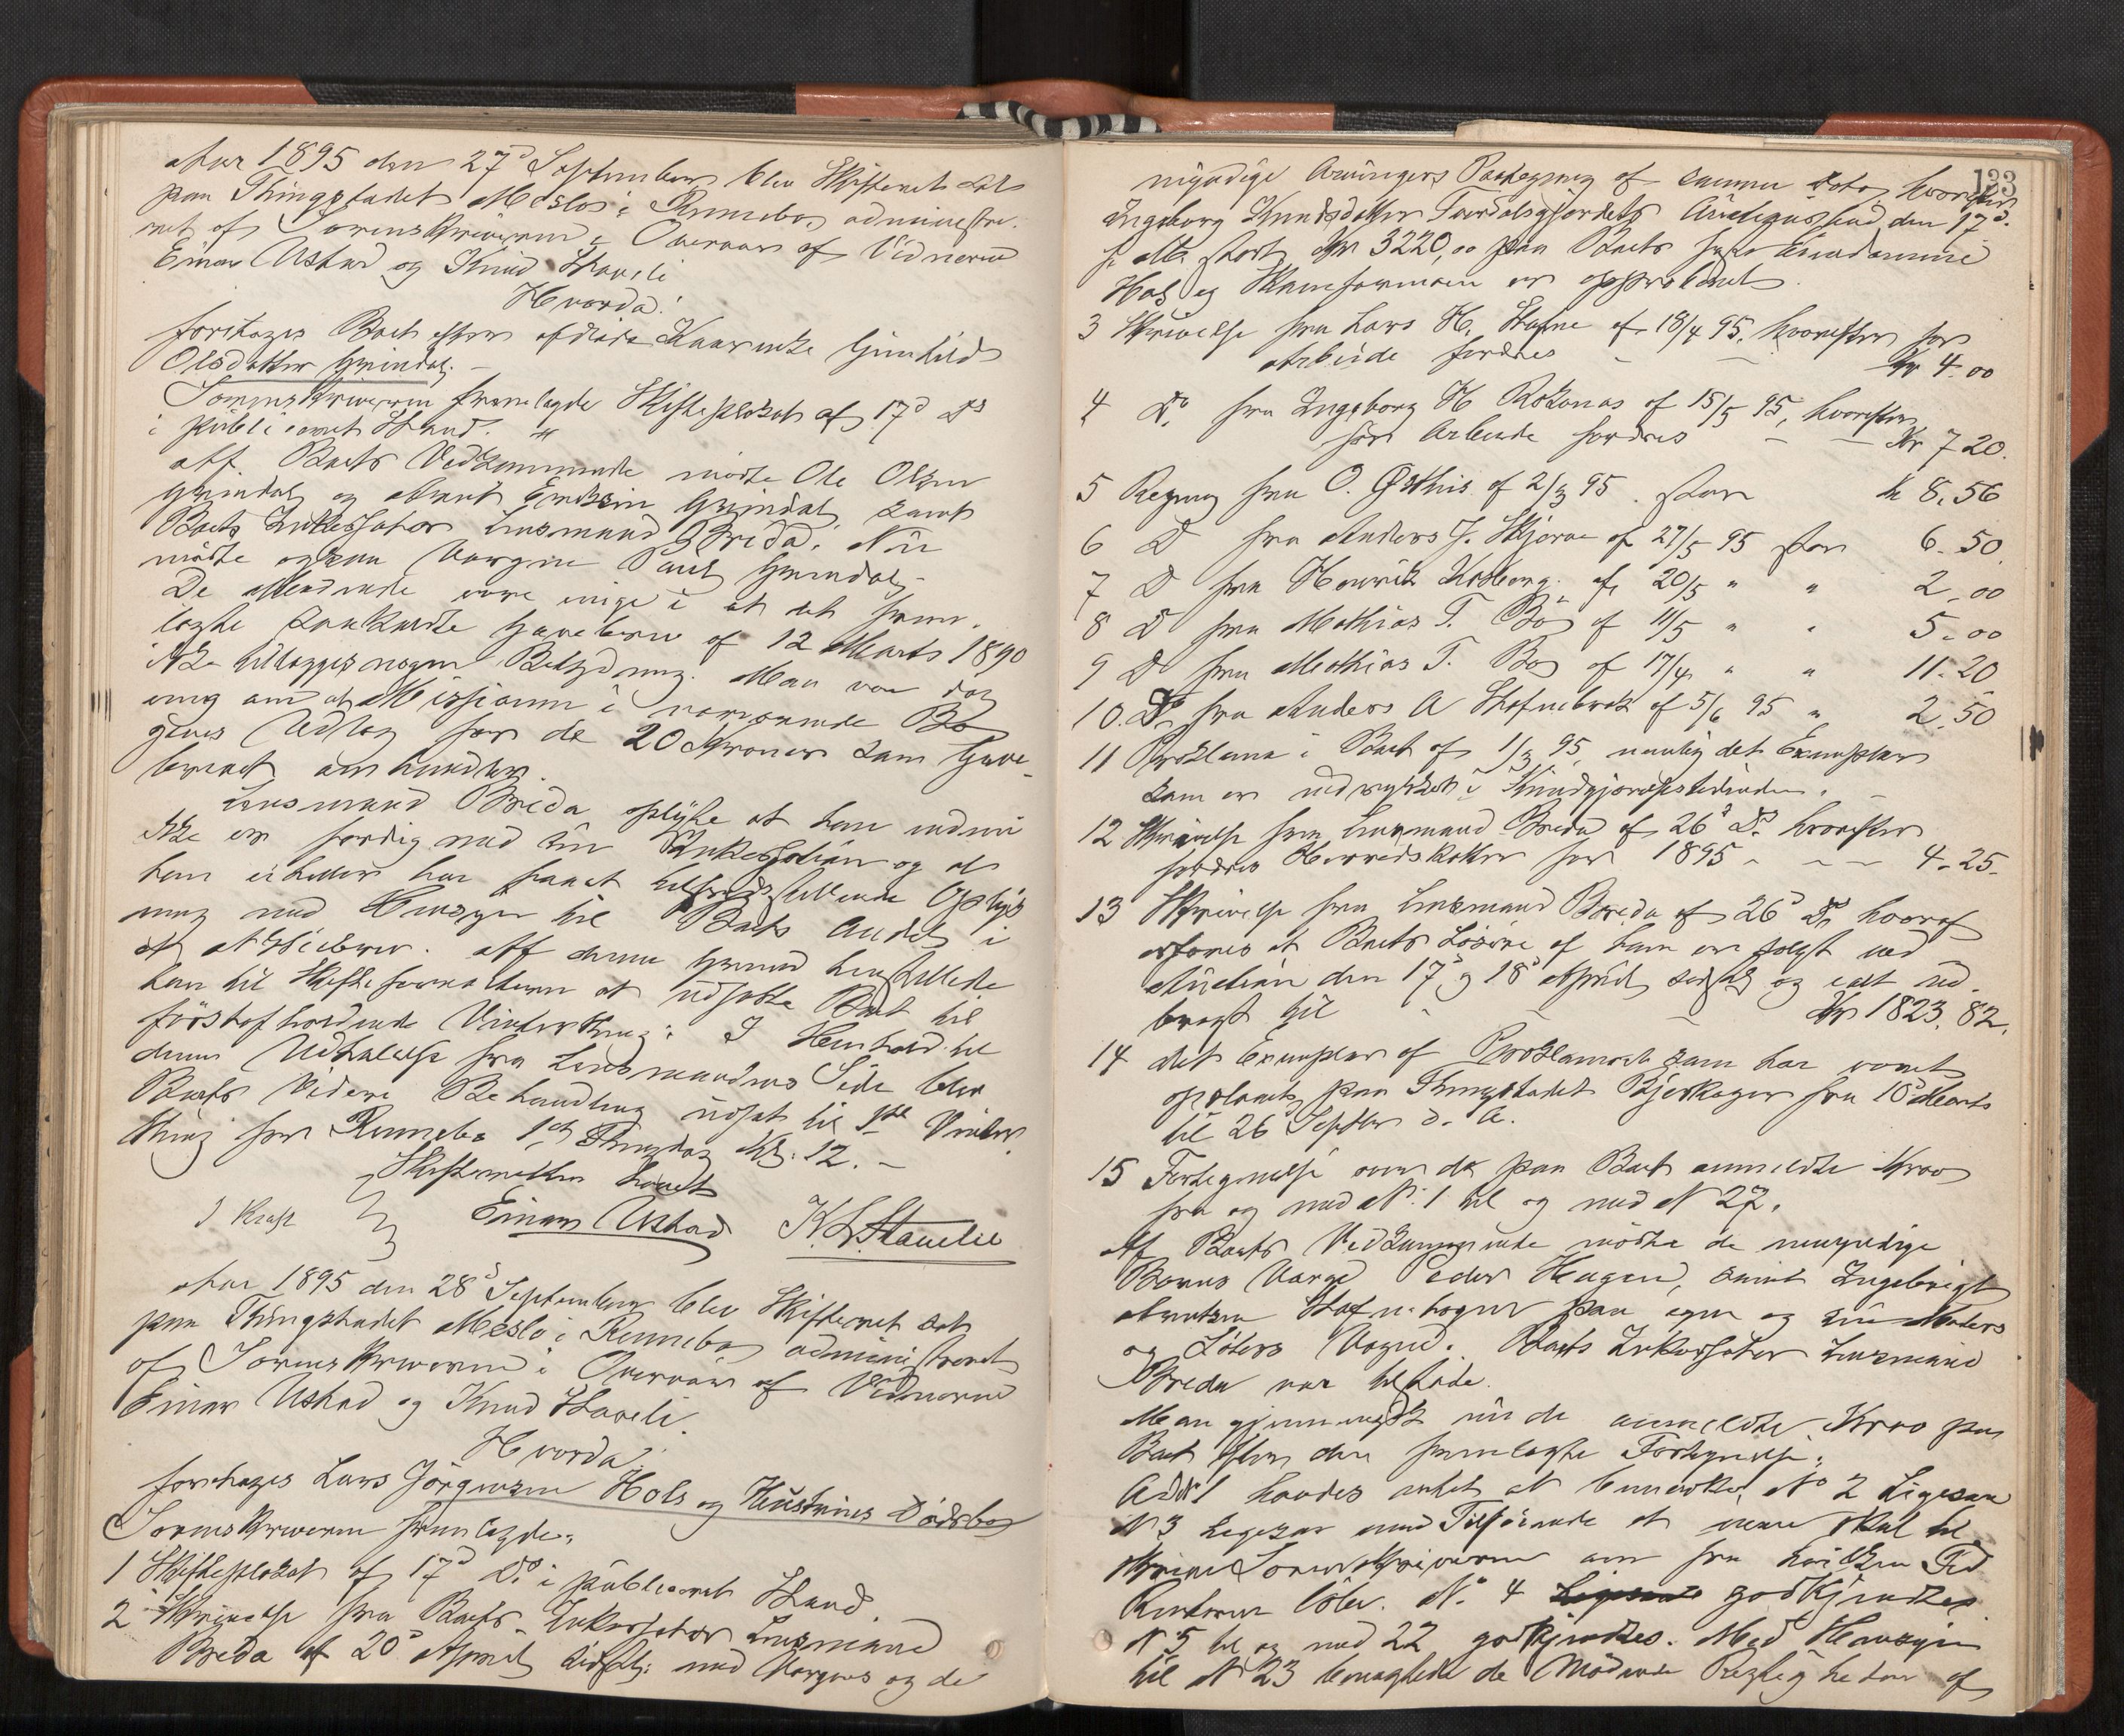 Aar 1895 den 27d September blev Skifteret sat
paa Thingstadet Meslo i Rennebo, administre-
ret af Sorenskriveren i Overvær af Vidnerne
Einar Ustad og Knud Staveli
Hvorda:
foretages Boet efter afdøde Gunhild
Olsdatter Grindal. -
Sorenskriveren fremlagde Skifteplakat af 17d Ds
i publiceret Stand.
Af Boets Vedkommende mødte Ole Olsen
Grindal og Grindal samt
Boets Inkassator Lensmand Breda. Nu
mødte ogsaa Værgen Grindal.
De Mødende vare enige i at det frem-
lagte saakaldte Gavebrev af 12 Marts 1890
ikke tillægges nogen Betydning. Man var dog
enig om at Missionen i nærværende Bo
gives Udlæg for de 20 Kroner som Gave-
brevet omhandler.
Lensmand Breda oplyste at han endnu
ikke er færdig med sin Inkassation og at
han ei heller har faaet tilfredsstillende Oplys-
ning med Hensyn til Boets Andel i
et Af denne Grund henstillede
han til Skifteforvalteren at udsætte Boet til
førstafholdende Vinterthing. I Henhold til
denne Udtalelse fra Lensmandens Side blev
Boets videre Behandling udsat til 1ste Vinter-
thing for Rennebo 1ste Thingdag Kl. 12. -
Skifteretten hævet
I Kraft Einar Ustad K. L. Stavelie
Aar 1895 den 28d September blev Skifteret sat
paa Thingstadet Meslo i Rennebo, administreret
af Sorenskriveren i Overvær af Vidnerne
Einar Ustad og Knud Staveli.
Hvorda:
foretages Lars Jørgensen Hols og Hustrues Dødsbo
Sorenskriveren fremlagde:
1 Skifteplakat af 17d Ds. i publiceret Stand.
2 Skrivelse fra Boets Inkassator Lensmand
Breda af 20d April sidstl. med Værgens og de
133
myndige Arvingers Paategning af samme Dato, hvorefter
Ingeborg Knudsdatter den 17d
f. M. stort Kr 3220,00 paa Boets faste Eiendomme
Hol og er approberet.
3 Skrivelse fra Lars H. Stafne af 18/4 95, hvorefter for
Arbeide fordres - - Kr 4.00
4 Do fra Ingeborg H af 15/5 95, hvorefter
for Arbeide fordres - - Kr 7 20.
5 Regning fra O. Østhus af 2/3 95. stor Kr 8.56
6 D fra Anders J. Skjerve af 27/5 95 stor 6.50
7 D fra Henrik af 20/5 " " 2,00
8 D fra Mathias T. Bø af 11/5 " " 5.00
9 D fra Mathias T. Bø af 17/4 " " 11.20
10. Do fra Anders A Stafnebrek af 5/6 95 " 2.50
11 Proklama i Boet af 1/3 95, nemlig det Exemplar
som er indrykket i Kundgjørelsestidende.
12 Skrivelse fra Lensmand Breda af 26d Ds. hvorefter
fordres Herredskatter for 1895 - - - 4.25.
13 Skrivelse fra Lensmand Breda af 26d Ds. hvoraf
erfares at Boets Løsøre af ham er solgt ved
Auction den 17d og 18d April sidstl og ialt ud-
bragt til - - - Kr 1823.82.
14 det Exemplar af Proklamaet som har været
opslaaet paa Thingstadet Bjerkager fra 10d Marts
til 26d Septbr d. A.
15 Fortegnelse over de paa Boet anmeldte Krav
fra og med No. 1 til og med N 27.
Af Boets Vedkommende mødte de umyndige
Børns Værge Peder Hagen, samt Ingebrigt
Arntsen Stafnehagen paa egne og sin Moders
og Søsters Vegne. Boets Inkassator Lensmand
Breda var tilstede.
Man gjennemgik nu de anmeldte Krav paa
Boet efter den fremlagte Fortegnelse.
Ad N 1 havdes intet at bemærke, No 2 Ligesaa
N 3 Ligesaa med Tilføiende at skal til-
skrive Sorenskriveren om fra hvilken Tid
Renterne løber. No 4 godkjendtes
N 5 til og med 22 godkjendtes. Med Hensyn
til N 23 benægtede de Mødende Rigtigheden af